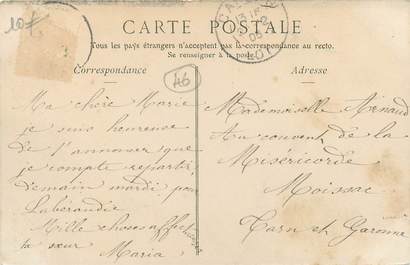 10f
CARTE POSTALE
Tous les pays étrangers n'acceptent pas la correspondance au recto.
Se renseigner à la poste.
Correspondance
Adresse
46
Ma chère Marie
je suis heureuse
de t'annoncer que
je compte repartir
demain mardi pour
Labérandie
Mille choses affect
ta sœur
Maria
Mademoiselle Arnaud
Au couvent de la
Miséricorde
Moissac
Tarn et Garonne